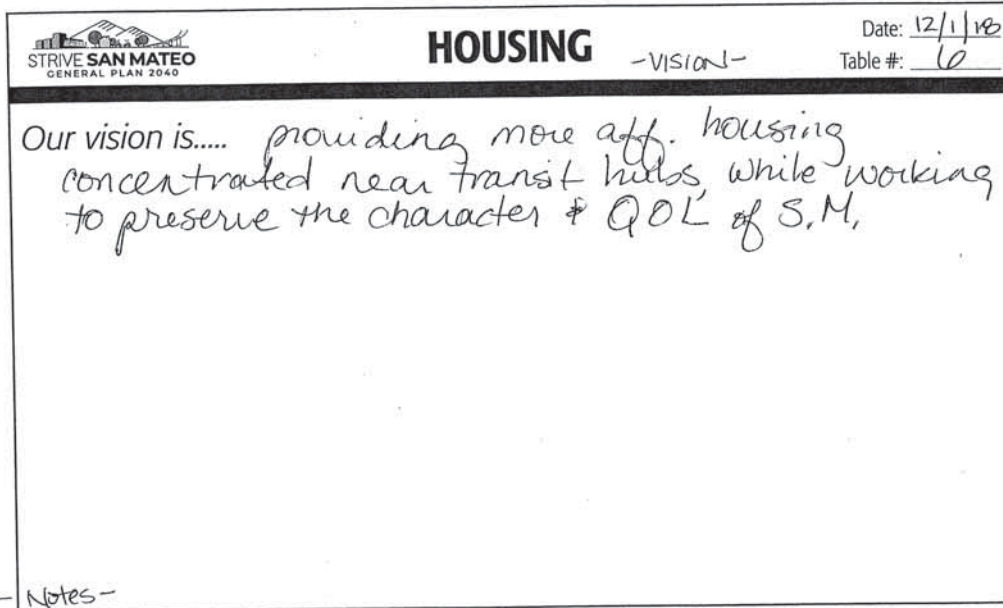 STRIVE SAN MATEO
GENERAL PLAN 2040
HOUSING -VISION-
Date: 12/1/18
Table #: 6
Our vision is..... providing more aff. housing
concentrated near transit hubs, while working
to preserve the character & QOL of S.M.
- Notes-